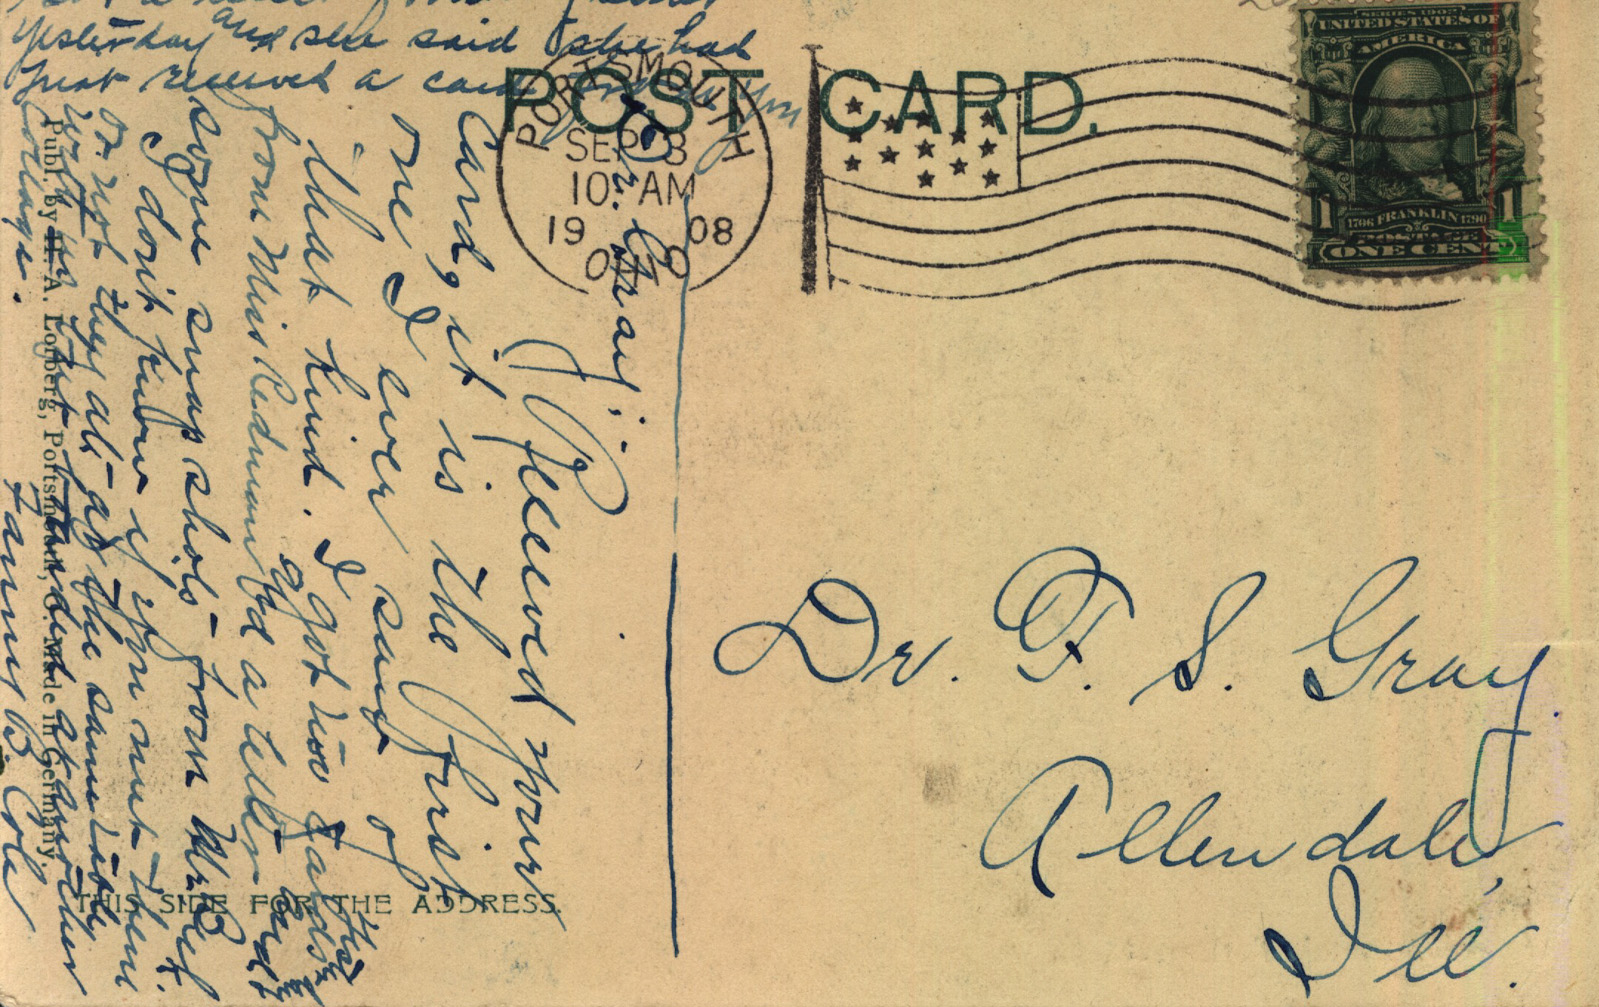 POST CARD.
PORTSMOUTH
SEP 3
10 AM
1908
OHIO
SERIES 1902
UNITED STATES OF
AMERICA
1706 FRANKLIN 1790
POSTAGE
1 ONE CENT 1
Dr. F. S. Gray
Allendale,
Ill.
Dr. Gray:
Received your
card, it is the first
one I ever saw of
that kind. I got two cards
from Miss Redman and a letter and
some snap shots from Mrs. B
I don't know if you met them
or not they at the same
with us
cottage.
Fanny B. Cole
yesterday and she said she had
just received a card from you
Publ. by A. Lorberg, Portsmouth, O. Made in Germany.
THIS SIDE FOR THE ADDRESS.